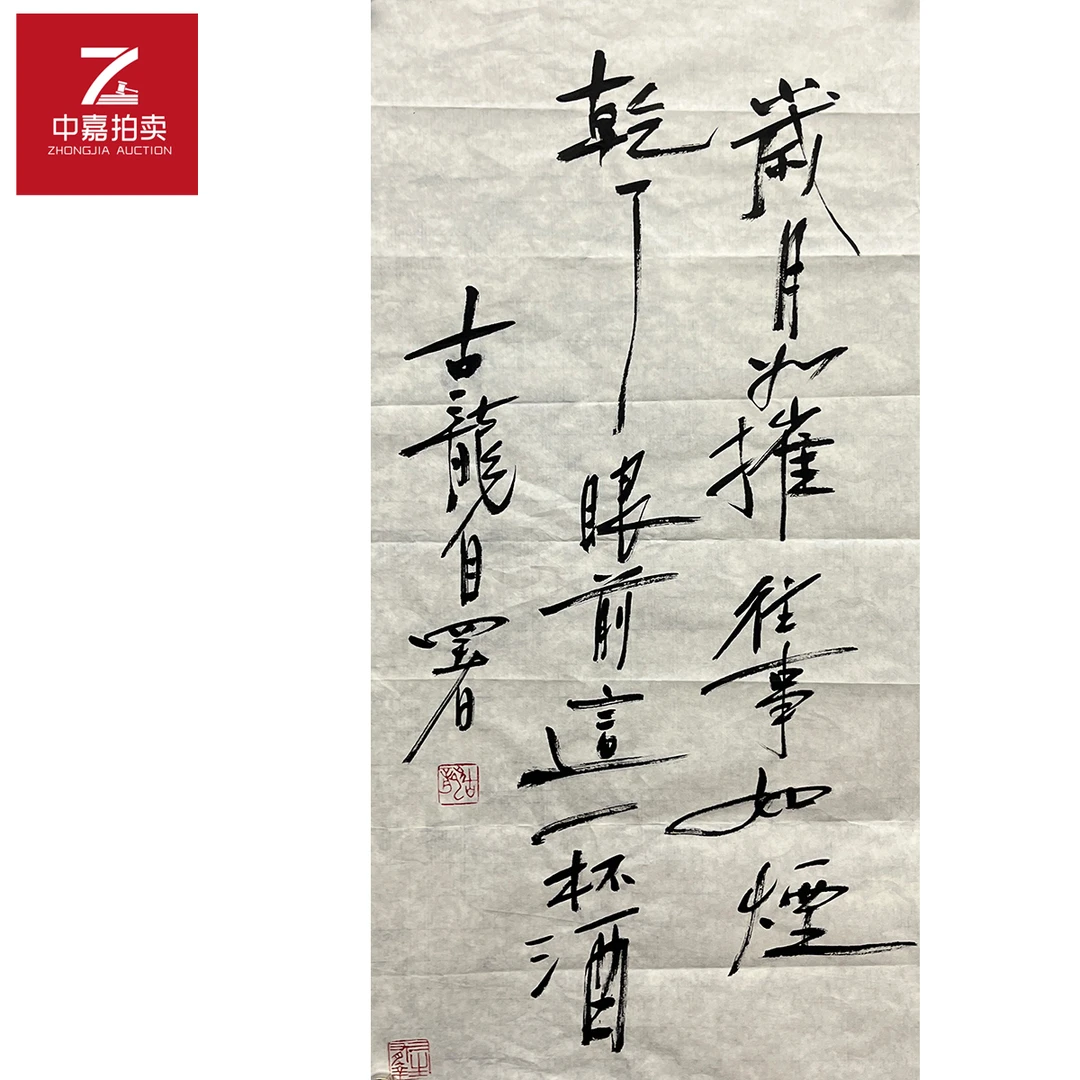 中嘉拍卖
ZHONGJIA AUCTION
歲月如摧往事如煙
乾了眼前這一杯酒
古龍自署